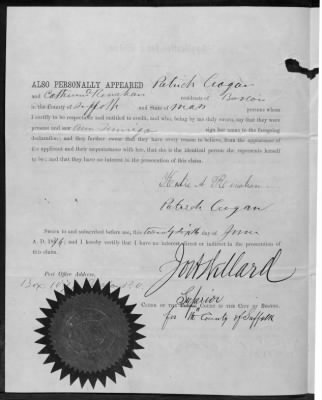 ALSO PERSONALLY APPEARED Patrick Cogan
and Catherine Renehan residents of Boston
in the County of Suffolk and State of Mass persons whom
I certify to be respectable and entitled to credit, and who, being by me duly sworn, say that they were
present and saw Ann sign her name to the foregoing
declaration; and they further swear that they have every reason to believe, from the appearance of
the applicants and their acquaintance with her, that she is the identical person she represents herself
to be; and that they have no interest in the prosecution of this claim.
Patrick Cogan
SWORN to and subscribed before me, this twenty sixth day of June
A. D. and I hereby certify that I have no interest direct or indirect in the prosecution
of this claim.
Post Office Address,
Box
Jos A Willard
Superior
CLERK OF THE COURT IN THE CITY OF BOSTON.
for the County of Suffolk